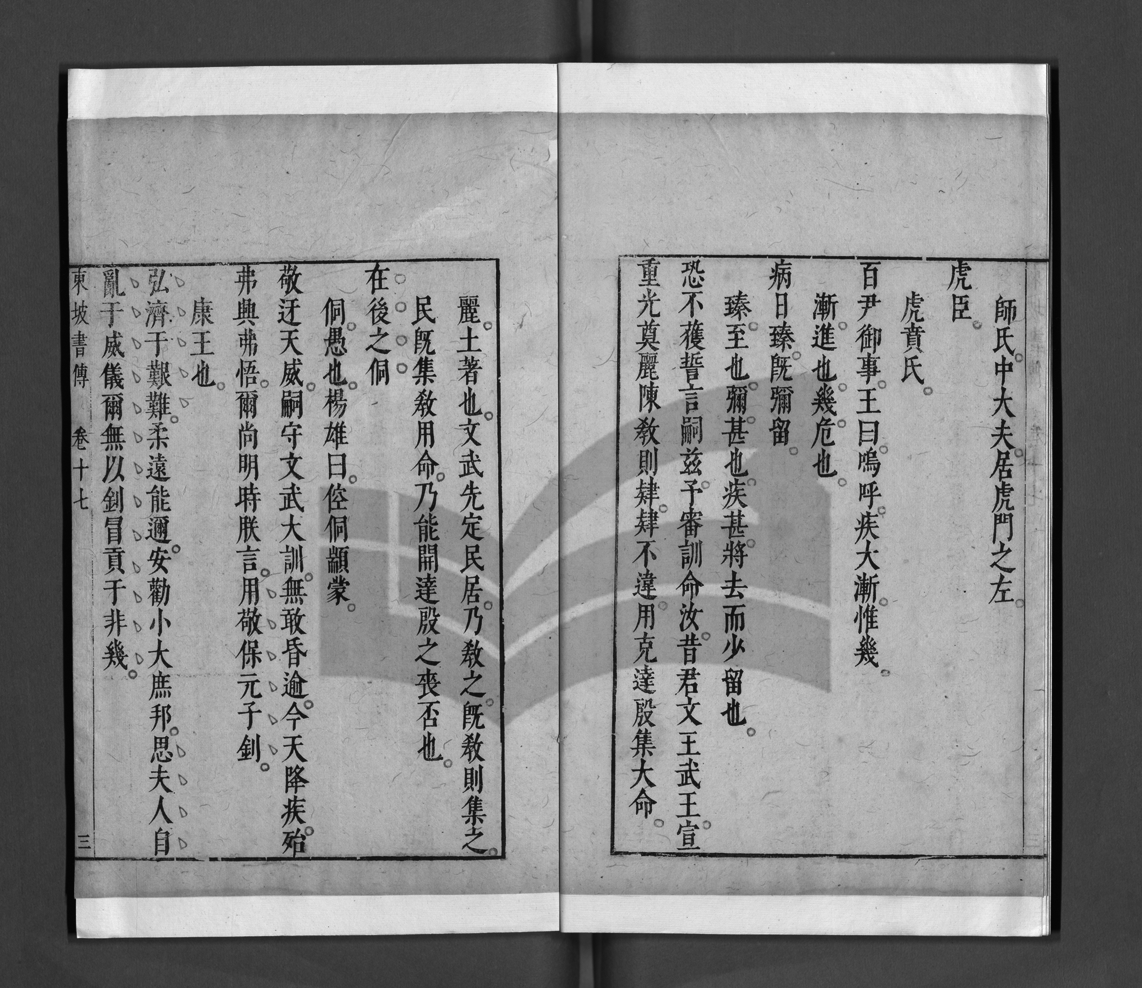 師氏。中大夫。居虎門之左。
虎臣。
虎賁氏。
百尹御事。王曰。嗚呼。疾大漸。惟幾。
漸。進也。幾。危也。
病日臻。旣彌留。
臻。至也。彌。甚也。疾甚。將去而少留也。
恐不獲誓言嗣茲。予審訓命汝。昔君文王武王。宣
重光。奠麗陳敎則肄。肄不違。用克達殷集大命。
麗。土著也。文武先定民居。乃敎之。旣敎則集之。
民旣集敎用命。乃能開達殷之喪否也。
在後之侗
侗。愚也。楊雄曰。倥侗顓蒙。
敬迓天威。嗣守文武大訓。無敢昏逾。今天降疾。殆
弗興弗悟。爾尚明時朕言。用敬保元子釗。
康王也。
弘濟于艱難。柔遠能邇。安勸小大庶邦。思夫人自
亂于威儀爾無以釗冒貢于非幾。
東坡書傳 卷十七 三